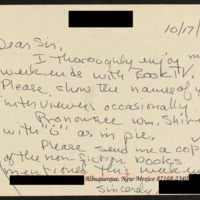 10/17/
Dear Sir,
I thoroughly enjoy m
week ends with Book TV.
Please show the name of y
interviewers occasionally
Pronounce Wm. Shir
with "i" as in pie.
Please send me a cop
of the non-fiction books
mentioned this week
Albuquerque, New Mexico 87108-2340
Sincerely,